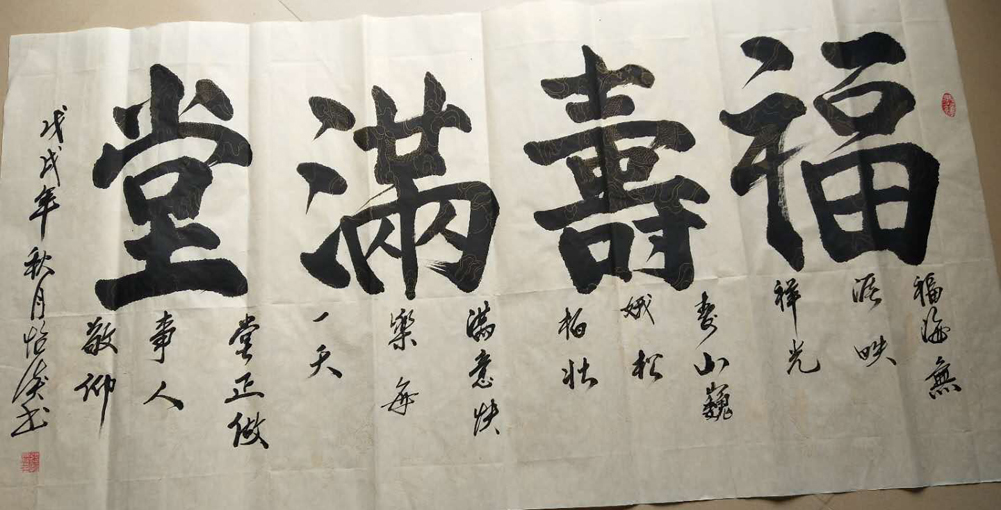 福壽滿堂
福海無
涯映
祥光
壽山巍
娥松
柏壯
滿意快
樂每
一天
堂正做
事人
敬仰
戊戌年秋月怡
书